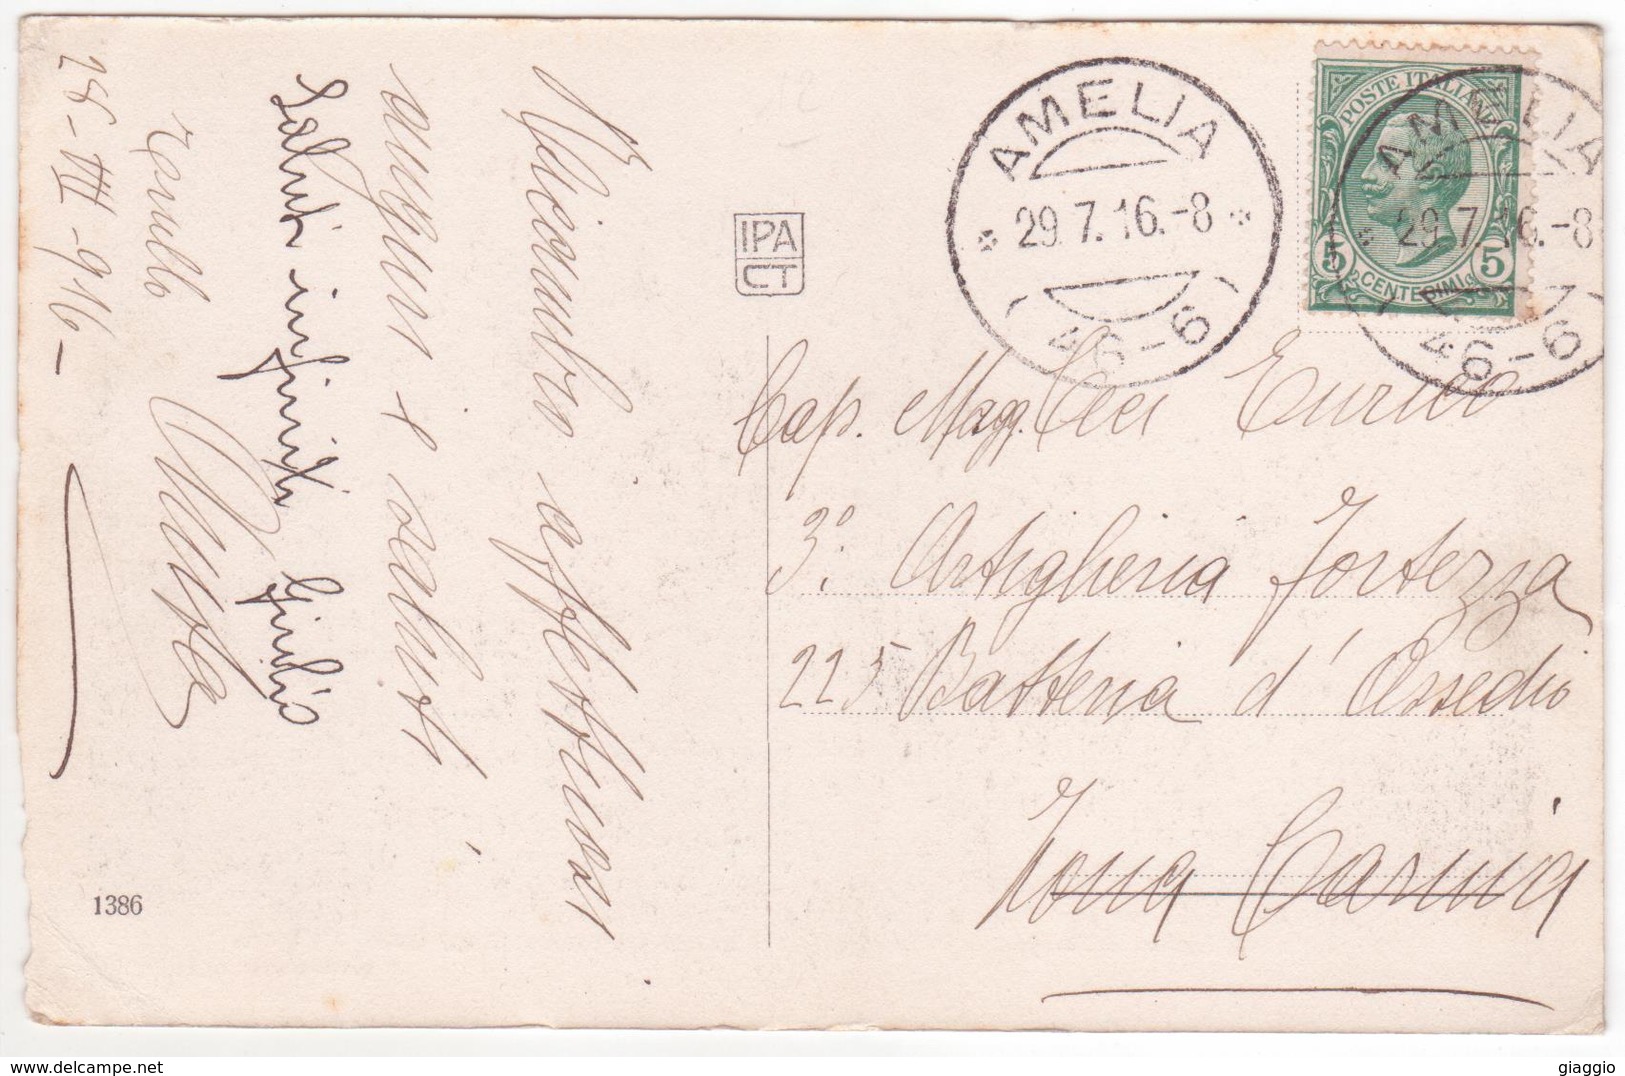 28-VII-916-
Saluti infiniti Giulio
Ricambio affettuosi
auguri e saluti
1386
IPA
CT
AMELIA
29.7.16.-8
(46-6)
POSTE ITALIANE
5 CENTESIMI 5
AMELIA
29.7.16.-8
46-6
Cap. Magg. Ceci Enrico
3º. Artiglieria Fortezza
225 Batteria d'Assedio
Zona Carnia
giaggio